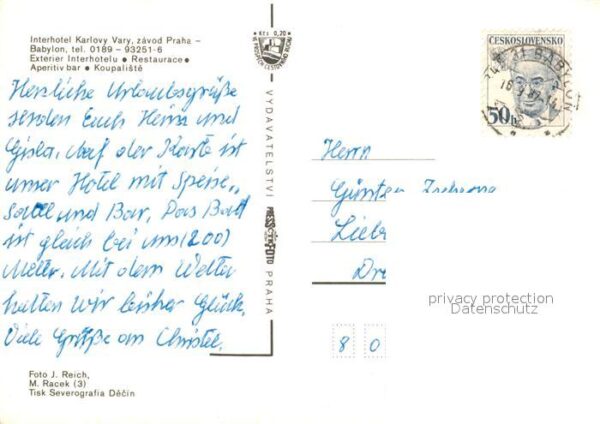 Interhotel Karlovy Vary, závod Praha –
Babylon, tel. 0189 – 93251-6
Exterier Interhotelu ● Restaurace ●
Aperitiv bar ● Koupaliště
Herzliche Urlaubsgrüße
senden Euch Heinz und
Gisla. Auf der Karte ist
unser Hotel mit Speise„
saal und Bar. Das Bad
ist gleich bei uns (200)
Meter. Mit dem Wetter
hatten wir bisher Glück.
Viele Grüße an Christel.
Foto J. Reich,
M. Racek (3)
Tisk Severografia Děčín
Kčs 0,20
VYDAVATELSTVÍ
PRESSFOTO
PRAHA
ČESKOSLOVENSKO
50h
BABYLON
Herrn
Günter
Lieb
Dr
8 0
privacy protection
Datenschutz